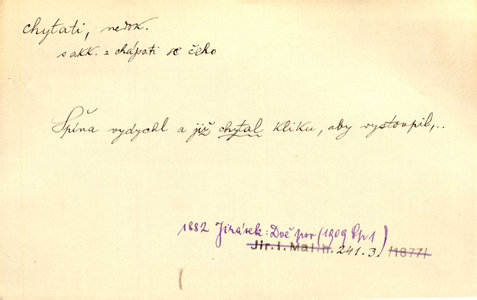 chytati, nedok.
s akk. = chápati se čeho
Špína vydychl a již chytal kliku, aby vystoupil,..
1882 Jirásek: Dvě por (1909 Sp1)
Jir. I. Mal. n. 241.3. /1877/